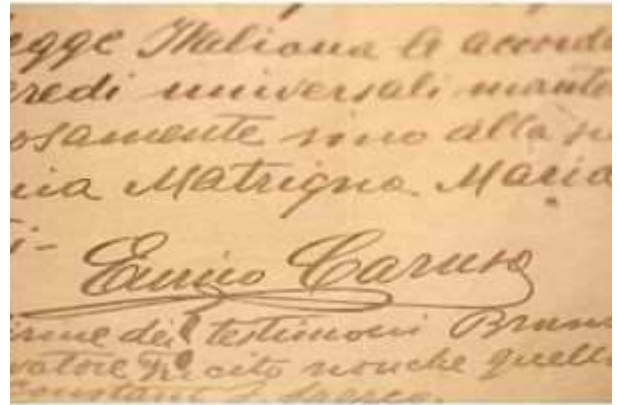 egge Italiana le accorda
eredi universali mante
osamente sino alla
ia Matrigna Maria
ti-
Enrico Caruso
firme dei testimoni Brun
vatore nonche quell
Constant